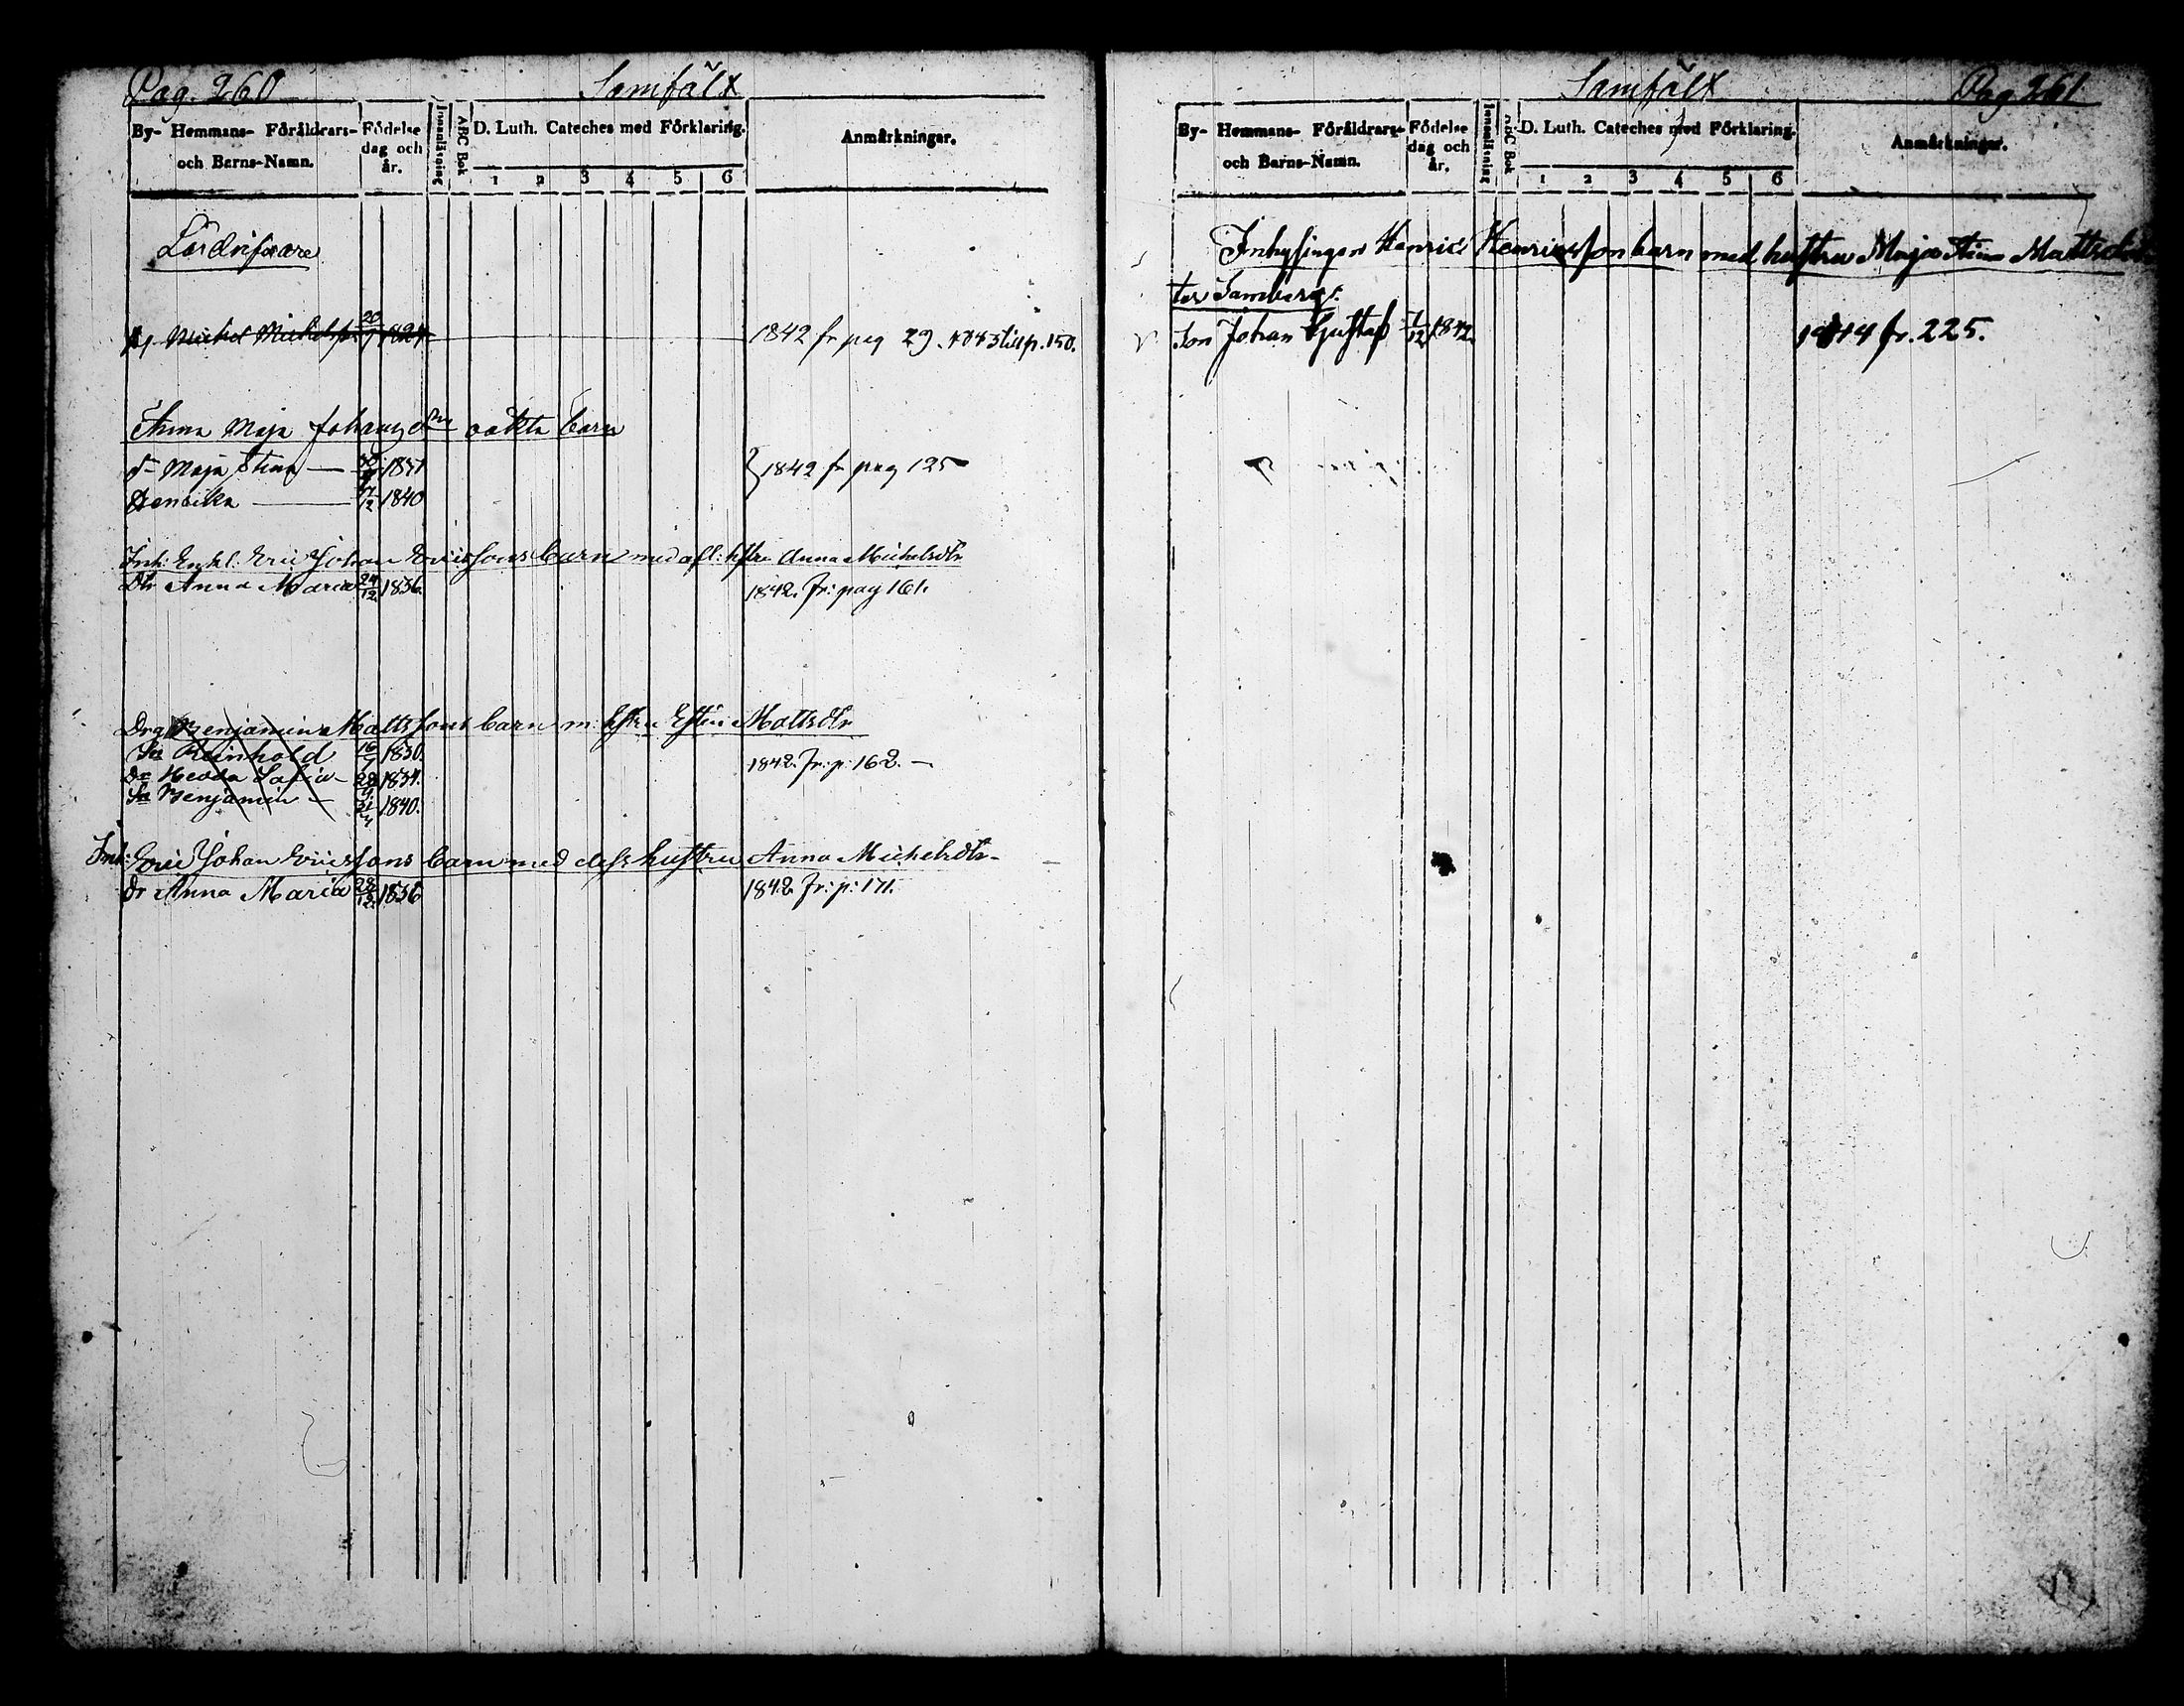 Pag. 260
Samfält
By- Hemmans- Föräldrars- och Barns-Namn.
Födelse dag och år.
Innanläsning
ABC Bok
D. Luth. Cateches med Förklaring.
1 2 3 4 5 6
Anmärkningar.
Michel Michelsson 20 1824 1842 fr pag 29. 1843 till p. 150.
Anna Maja Johansdr oäkta barn
dr Maja Stina 1842 fr pag 125
Henrika 12 1840
Inh: Enkl. Eric Johan Ericssons barn med afl: hstru Anna Michelsdtr
Dtr Anna Maria 24/12 1836. 1842. Fr: pag 161.
Drg Benjamin Mattssons barn m: hstru Mattsdtr
Sn Reinhold 16 1830.
Dr Hedda Sofia 1842. Fr: p: 162.
Sn Benjamin 1840.
Inh: Eric Johan Ericssons barn med dess hustru Anna Michelsdtr
Dr Anna Maria 12 1836 1842 Fr: p: 171.
Samfält
Pag 261
By- Hemmans- Föräldrars- och Barns-Namn.
Födelse dag och år.
Innanläsning
ABC Bok
D. Luth. Cateches med Förklaring.
1 2 3 4 5 6
Anmärkningar.
Inhysingen Henric Henricsson barn med hustru Maja Stina Mattsdot
ter Samberg:
Son Johan Gustaf 1/12 1842. 1844 fr. 225.